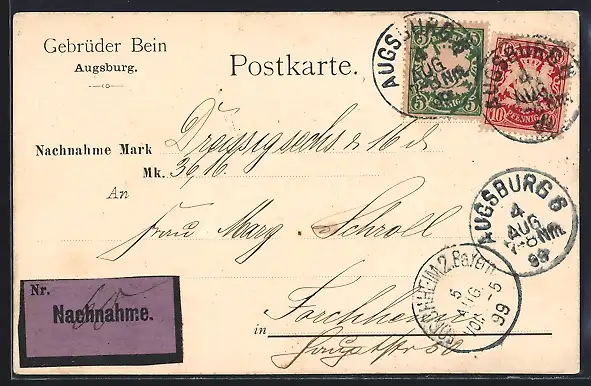 Gebrüder Bein
Augsburg.
Postkarte.
AUGSBURG
4
AUG
7-8 Nm
99
5 5
PFENNIG
AUGSBURG
4
AUG
10 10
PFENNIG
Nachnahme Mark Dreissigsechs & 16 d
Mk. 36,16.
An
Frau Marg Schroll
AUGSBURG 6
4
AUG
7-8 Nm.
99
FORCHHEIM 2. Bayern
5
AUG
VOR
5-6
99
Nr.
Nachnahme.
Forchheim
in
Hauptstr 50